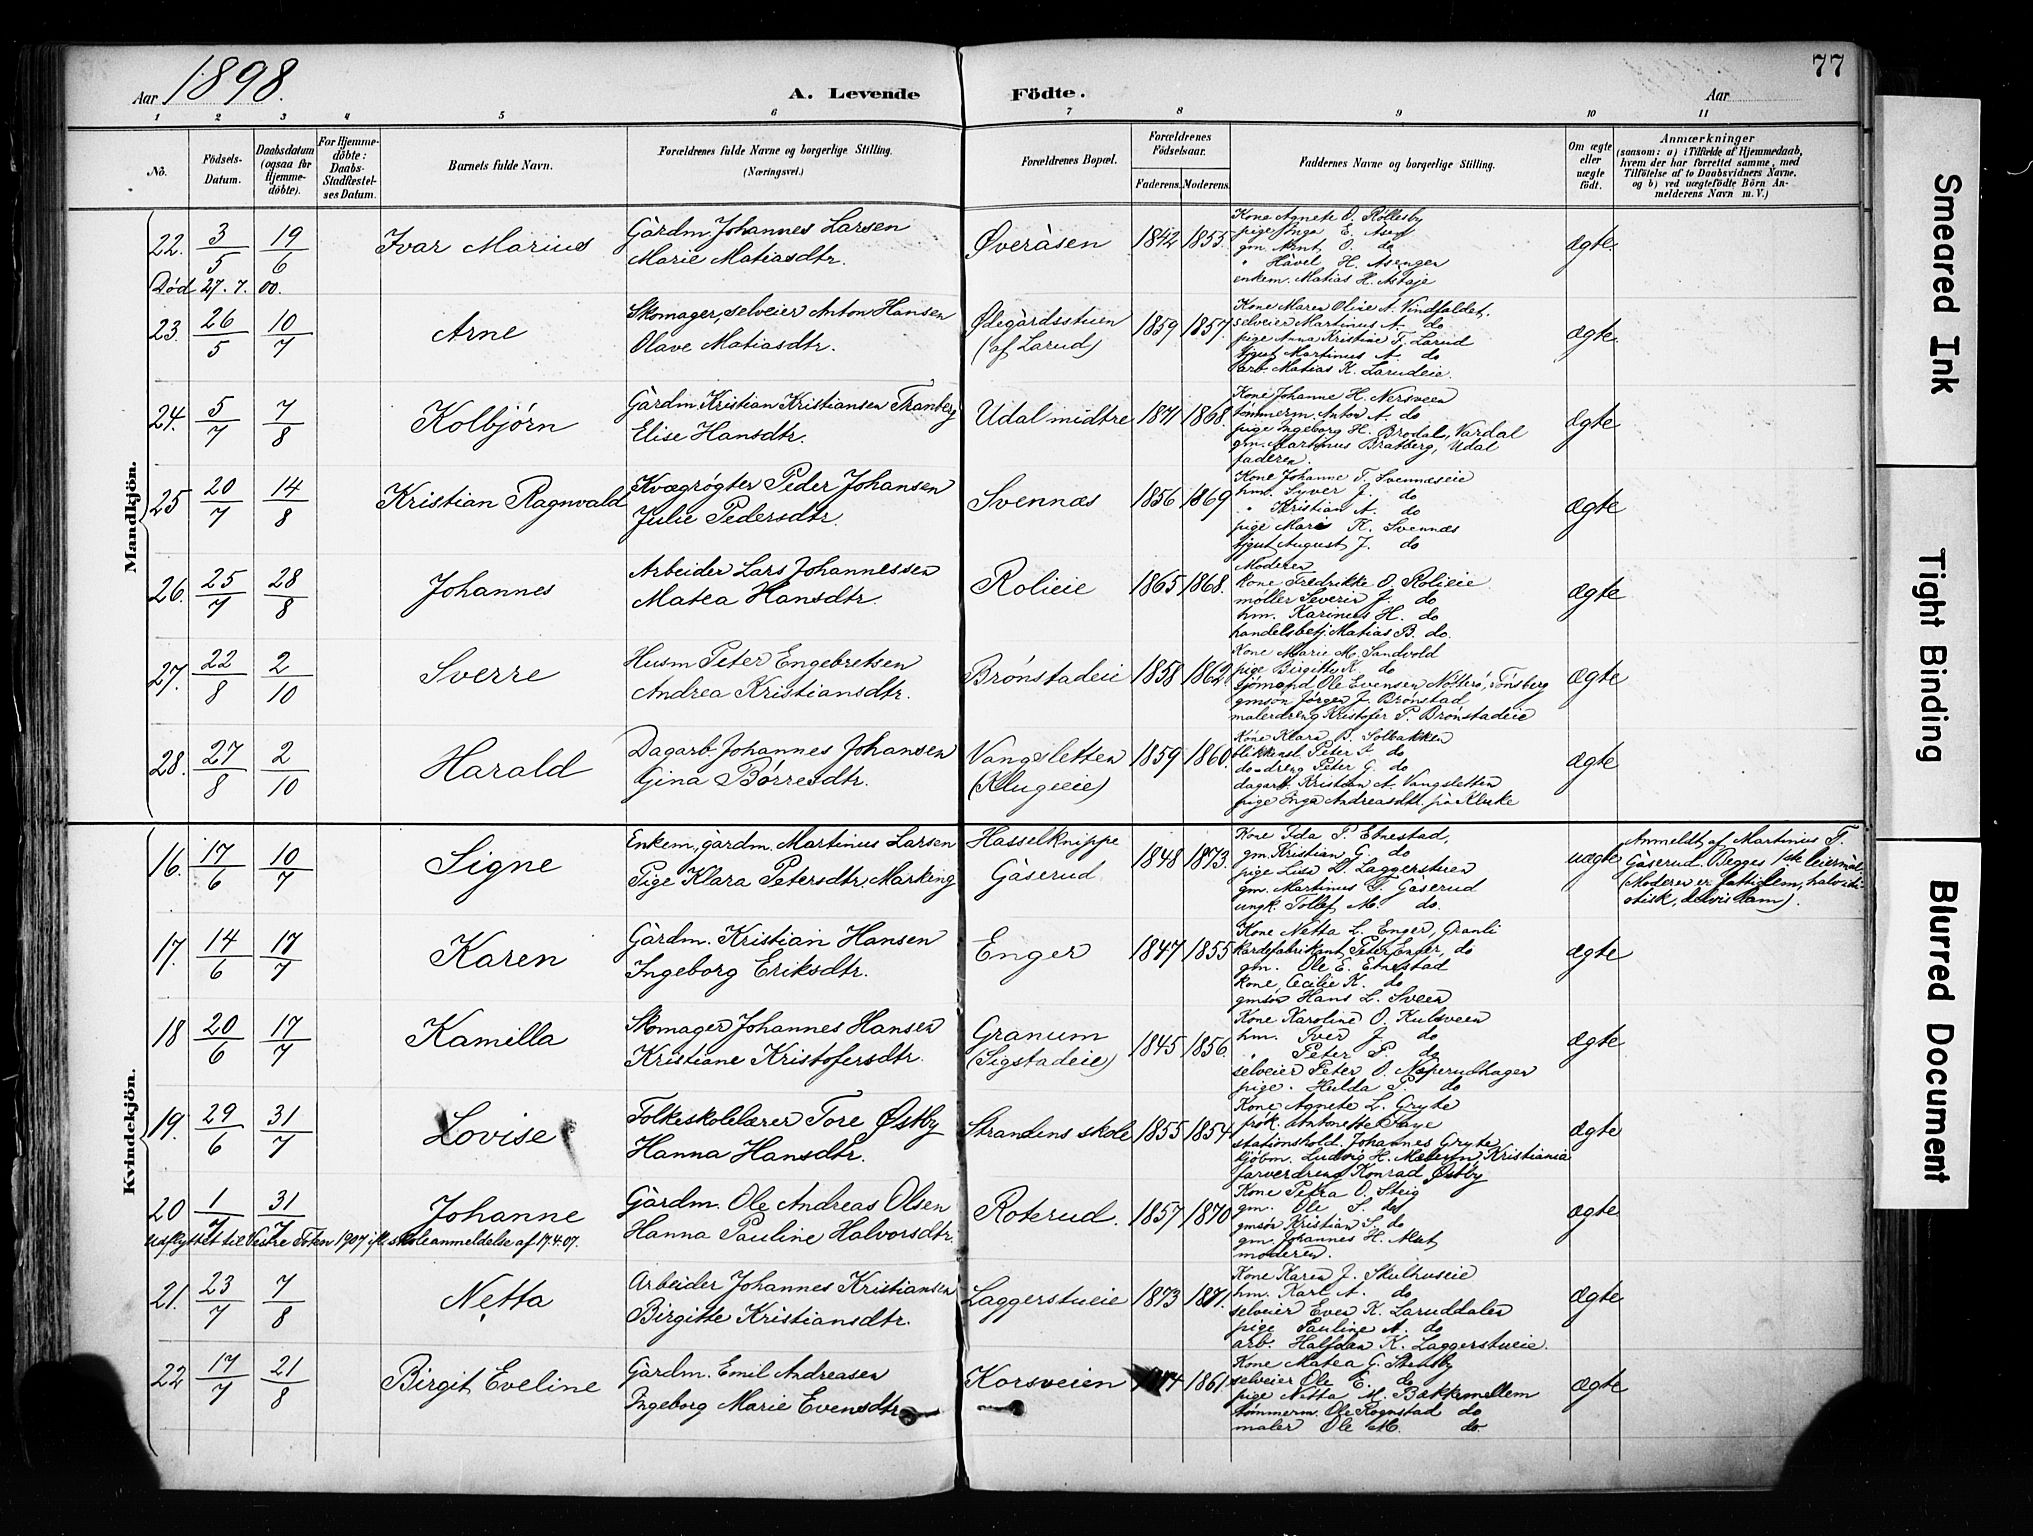 Aar 1898.
A. Levende Födte.
Aar
77
1 2 3 4 5 6 7 8 9 10 11
No.
Födsels-Datum.
Daabsdatum (ogsaa för Hjemme-döbte).
For Hjemme-döbte: Daabs-Stadfæstel-ses Datum.
Barnets fulde Navn.
Forældrenes fulde Navne og borgerlige Stilling. (Næringsvei.)
Forældrenes Bopæl.
Forældrenes Födselsaar.
Faderens. Moderens.
Faddernes Navne og borgerlige Stilling.
Om ægte eller uægte födt.
Anmærkninger
(saasom: a) i Tilfælde af Hjemmedaab, hvem der har forrettet samme, med Tilföielse af to Daabsvidners Navne, og b) ved uægtefödte Börn An-melderens Navn m. V.)
Mandkjön.
22. 3/5 19/6 Ivar Marius Gårdm. Johannes Larsen
Marie Matiasdtr. Øveråsen 1842 1855. ægte
Kone Agnete O. Röllesby
pige Inga E.
gm. O. do
" Håvel H. Asengen
enkem. Matias H.
Död 27.7.00.
23. 26/5 10/7 Arne Skomager, selveier Anton Hansen
Olave Matiasdtr. Ødegårdsstuen (af Larud) 1859 1857. ægte
Kone Maren Oline A. Vindfaldet.
selveier Martinus A. do
pige Anna Kristine T. Larud
tjgut Martinus A. do
arb. Matias K. Larudeie.
24. 5/7 7/8 Kolbjørn Gårdm. Kristian Kristiansen Tranberg
Elise Hansdtr. Udal midtre 1871 1868. ægte
Kone Johanne H. Nersveen
tømmerm. Anton A. do
pige Ingeborg H. Brodal, Vardal
gm. Martinus Bratberg, Udal
faderen.
25 20/7 14/8 Kristian Ragnvald Kvægrøgter Peder Johansen
Julie Pedersdtr. Svennæs 1856 1869 ægte
Kone Johanne T. Svennæseie
hm. Syver J. do
" Kristian A. do
pige Mari K. Svennæs
tjgut August J. do
26. 25/7 28/8 Johannes Arbeider Lars Johannessen
Matea Hansdtr. Rolieie 1865 1868. ægte
Moderen
Kone Fredrikke O. Rolieie
møller Severin J. do
hm. Karinius H. do
handelsbetj. Matias B. do.
27. 22/8 2/10 Sverre Husm. Peter Engebretsen
Andrea Kristiansdtr. Brønstadeie 1858 1862 ægte
Kone Marie M. Sandvold
pige Birgitte K. do
Sjömand Ole Evensen Nötterö, Tönsberg
gmsøn Jörgen J. Brønstad
malerdreng Kristofer P. Brønstadeie
28. 27/8 2/10 Harald Dagarb. Johannes Johansen
Gina Børresdtr. Vangsletten (Klugeeie) 1859 1860. ægte
Kone Klara B. Solbakken
blikkensl. Peter A. do
do-dreng Peter G. do
dagarb. Kristian A. Vangsletten
pige Inga Andreasdtr. på Kluke
Kvindekjön.
16. 17/6 10/7 Signe Enkem., gårdm. Martinus Larsen
Pige Klara Petersdtr, Markeng Hasselknippe
Gåserud 1848 1873. uægte
Kone Ida P. Etnestad,
gm. Kristian G. do
pige Luise D. Laggerstuen
gm. Martinus T. Gåserud
ungk. Tollef M. do.
Anmeldt af Martinus T.
Gåserud. Begges 1ste leiermål.
(Moderen er fattiglem, halv idi-
otisk, delvis lam).
17. 14/6 17/7 Karen Gårdm. Kristian Hansen
Ingeborg Eriksdtr. Enger 1847 1855 ægte
Kone Netta L. Enger, Granli
Kardefabrikant Peter Enger, do
gm. Ole E. Etnestad
kone Cecilie K. do
gmsøn Hans L. Sveen
18 20/6 17/7 Kamilla Skomager Johannes Hansen
Kristiane Kristofersdtr. Granum (Sigstadeie) 1845 1856. ægte
Kone Karoline O. Kulsveen
hm. Iver J. do
" Peter P. do
selveier Peter O. Næperudhagen
pige. Hulda P. do
19. 29/6 31/7 Lovise Folkeskolelærer Tore Østby
Hanna Hansdtr. Strandens skole 1855 1854. ægte
Kone Agnete L. Gryte
frøk. Antonette Faye
stationshold. Johannes Gryte
kjöbm. Ludvig H. Kristiania
farverdreng Konrad Østby
20 1/7 31/7 Johanne Gårdm. Ole Andreas Olsen
Hanna Pauline Halvorsdtr. Roterud. 1857 1870 ægte
Kone Petra O. Steig
gm. Ole S. do
gmsøn Kristian S. do
gm. Johannes H. Alset
moderen.
Udflyttet til Vestre Toten 1907 ifl. skoleanmeldelse af 17.4.07.
21. 23/7 7/8 Netta Arbeider Johannes Kristiansen
Birgitte Kristiansdtr. Laggerstueie 1873 1871. ægte
Kone Karen J. Skulhuseie
hm. Karl A. do
selveier Even K. Laruddalen
pige Pauline A. do
arb. Halfdan K. Laggerstueie.
22 17/7 21/8 Birgit Eveline Gårdm. Emil Andreasen
Ingeborg Marie Evensdtr. Korsveien 1861. ægte
Kone Matea G. Stensby
selveier Ole E. do
pige Netta M. Bækkemellem
tømmerm. Ole Rognstad do
maler Ole M. do.
Smeared Ink
Tight Binding
Blurred Document